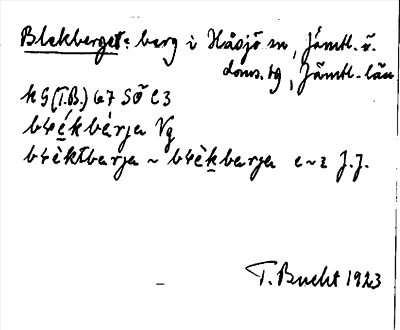 Blekberget: berg i Håsjö sn, Jämtl. ö.
doms. tg, Jämtl. län
KG (T.B.) 67 SÖ C3
bɬékbærja Vg
bɬèktbarja ~ bɬèkbarja J.J.
T. Bucht 1923